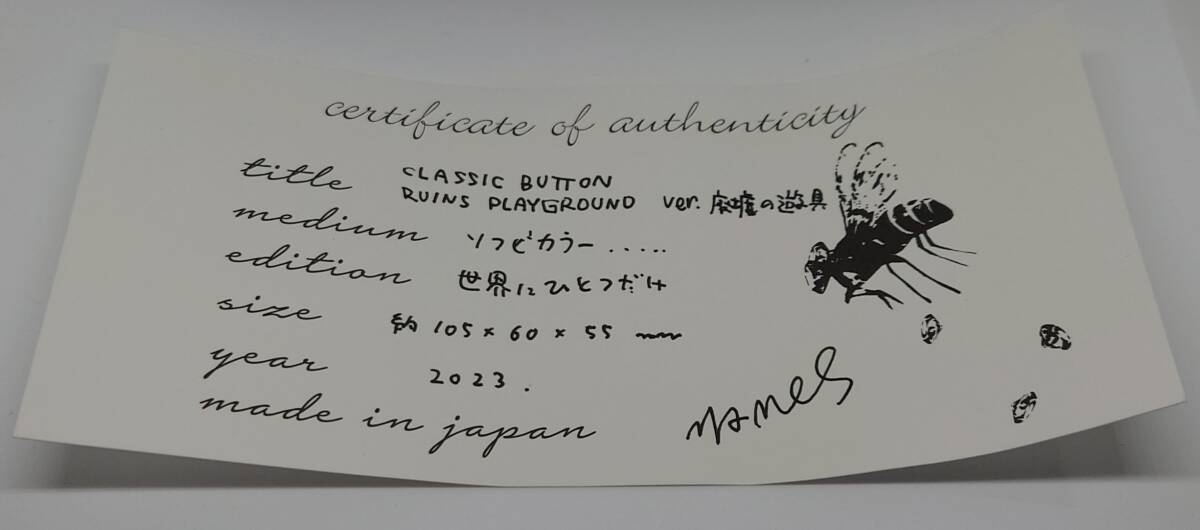 certificate of authenticity
title CLASSIC BUTTON
RUINS PLAYGROUND ver. 廃墟の遊具
medium ソフビカラー.....
edition 世界にひとつだけ
size 約 105 × 60 × 55 mm
year 2023.
made in japan